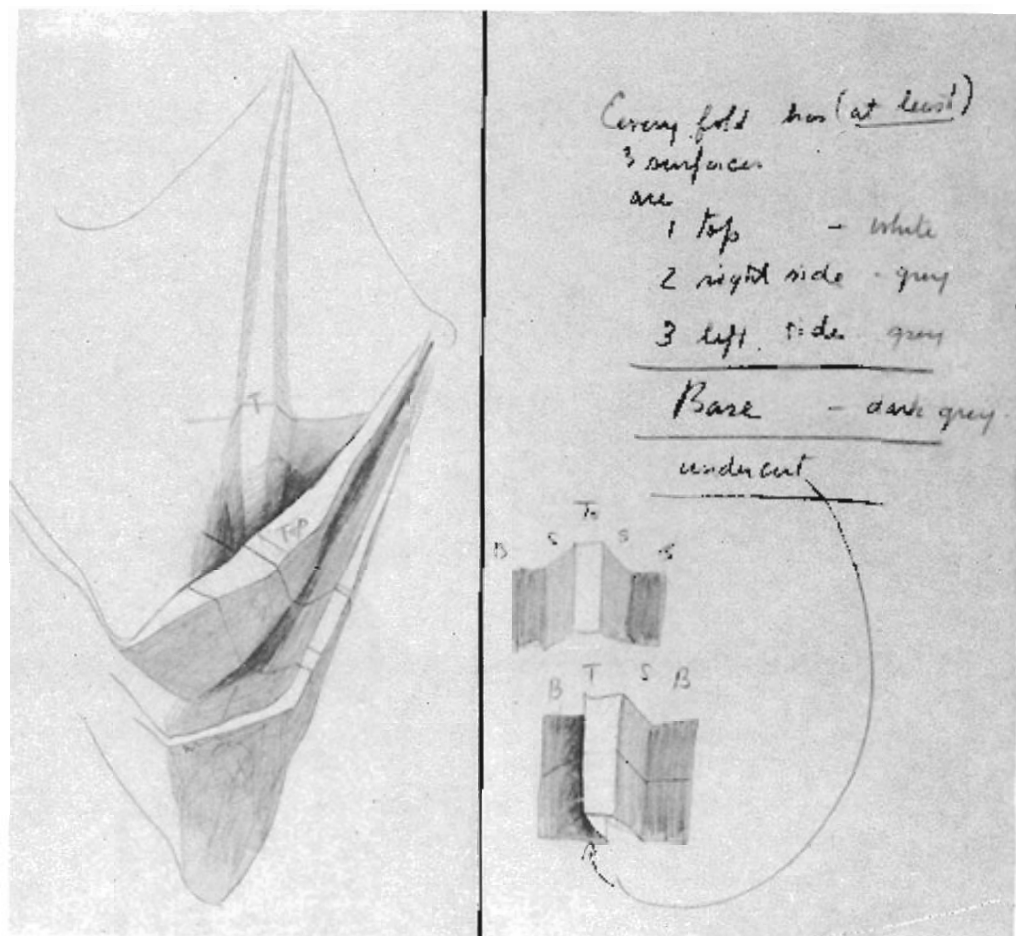 T
Top
Every fold has (at least)
3 surfaces
are
1 top - white
2 right side - grey
3 left side grey
Base - dark grey
undercut
B S To S B
B T S B